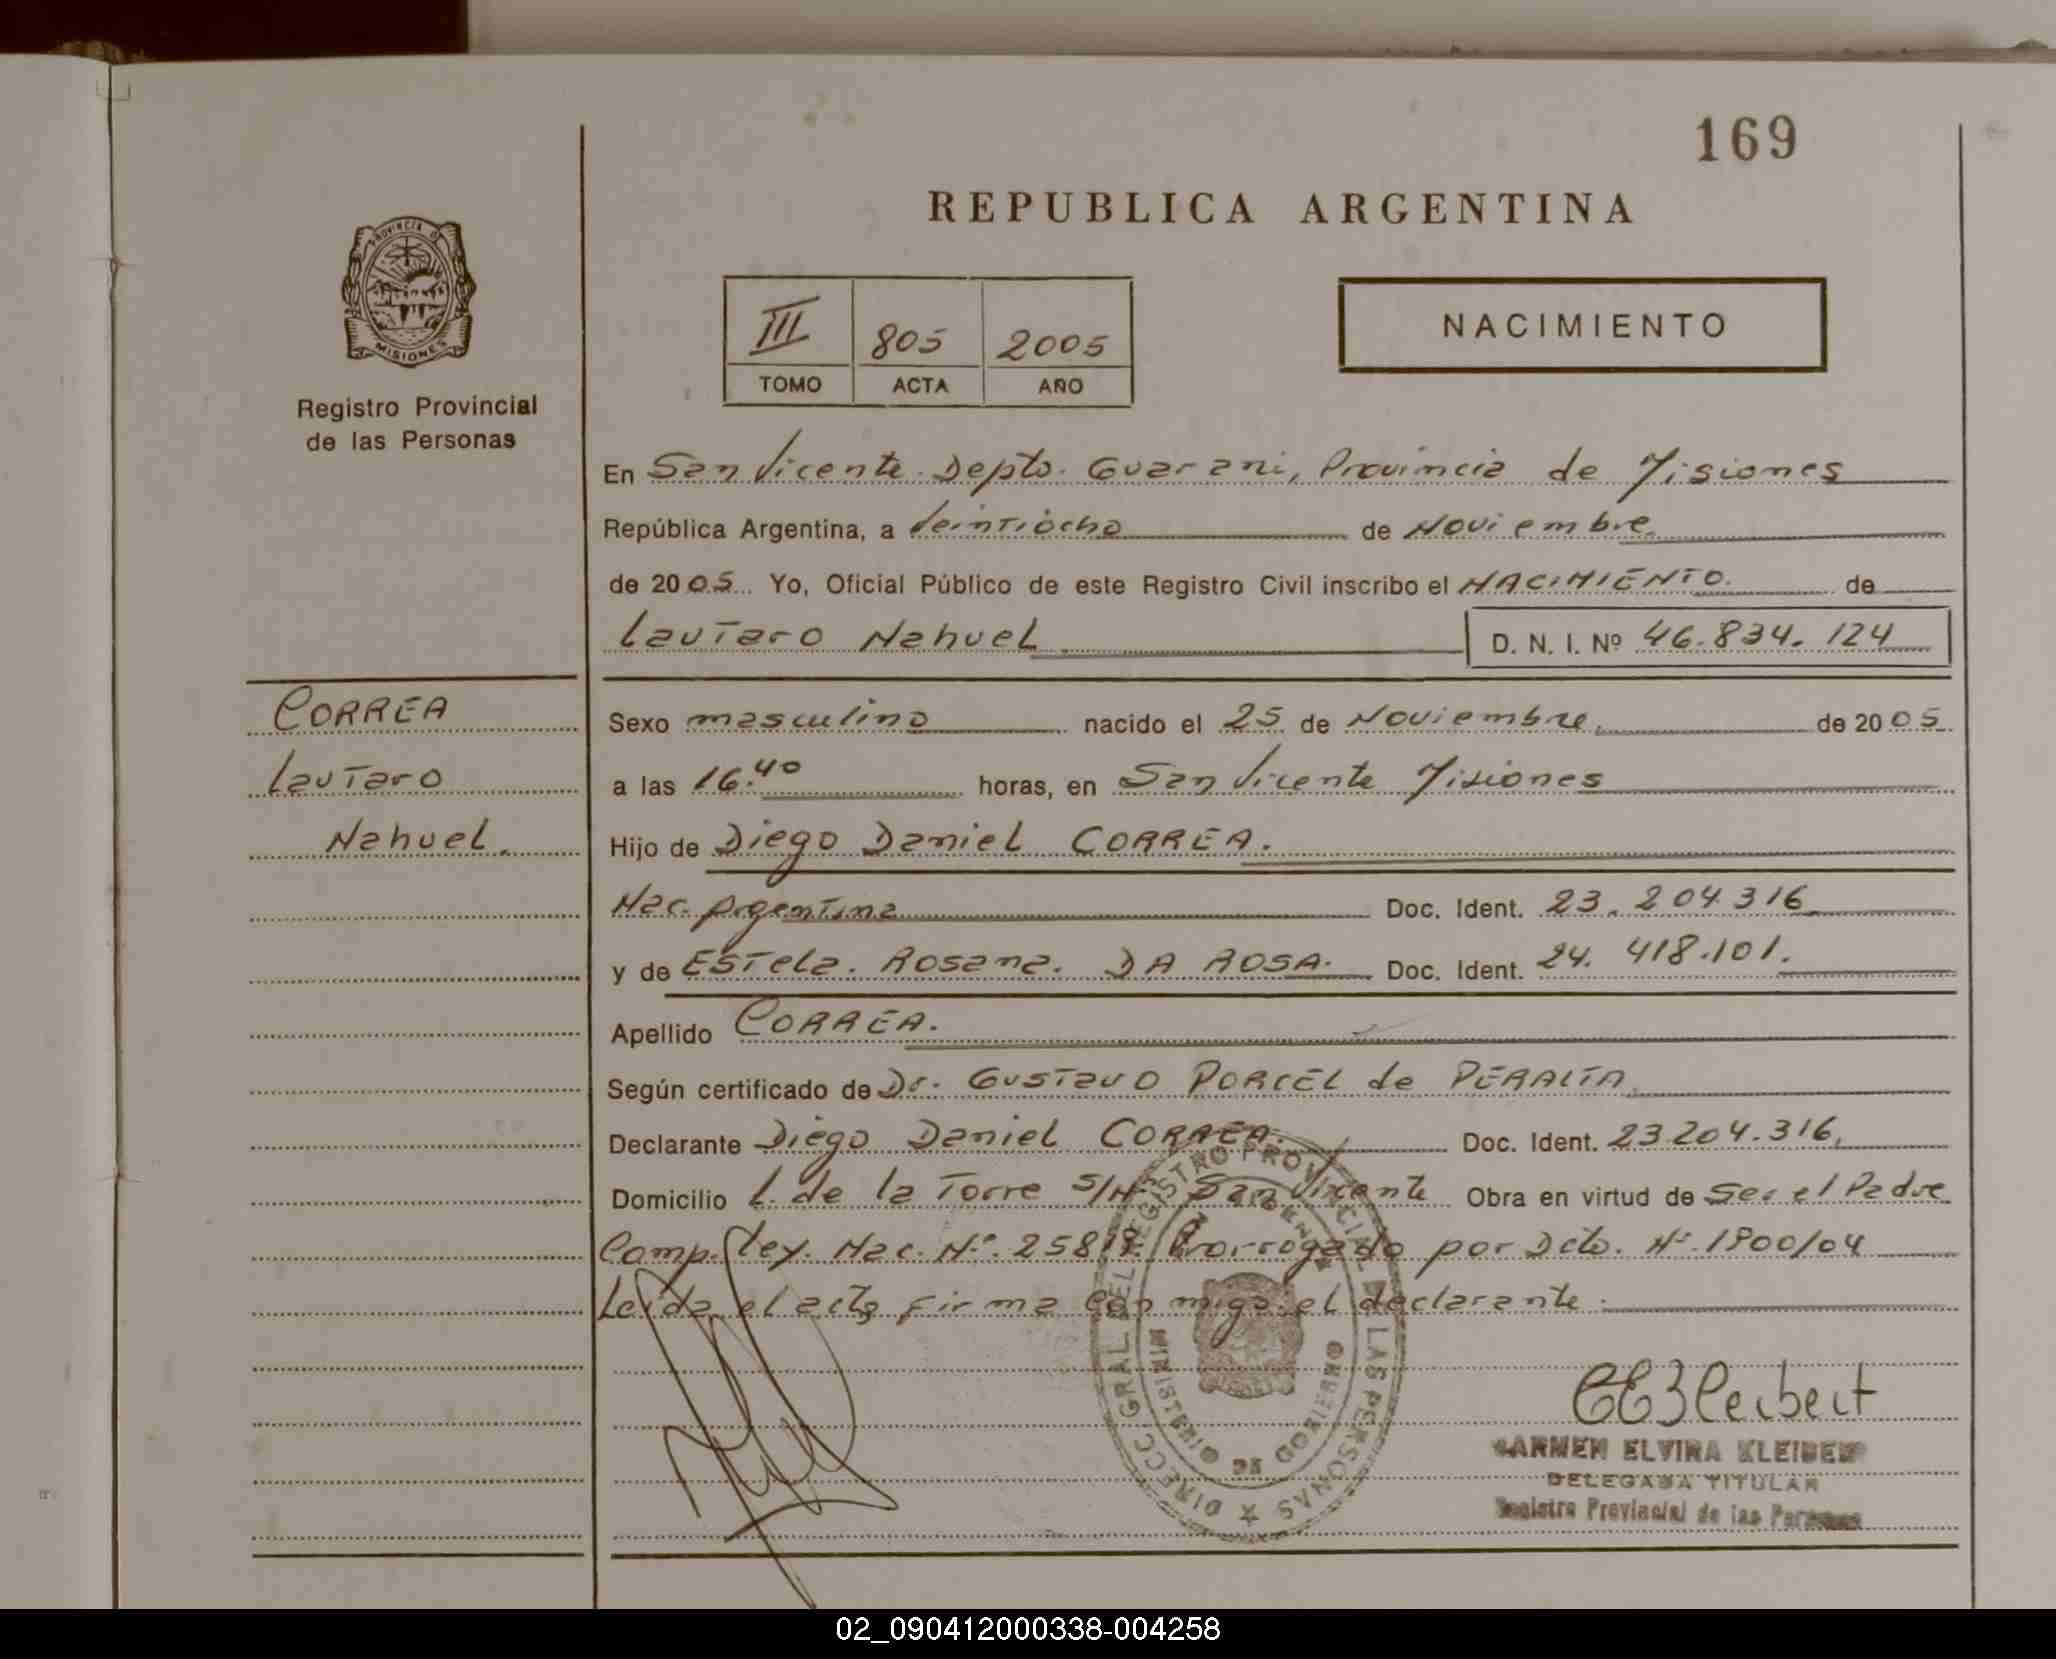 169
REPUBLICA ARGENTINA
PROVINCIA D
MISIONES
Registro Provincial
de las Personas
III 805 2005
TOMO ACTA AÑO
NACIMIENTO
En San Vicente. Depto. Guarani, Provincia de Misiones
República Argentina, a Veintiocho de Noviembre
de 2005 Yo, Oficial Público de este Registro Civil inscribo el NACIMIENTO. de
Lautaro Nahuel D. N. I. Nº 46.834.124
CORREA
Lautaro
Nahuel.
Sexo masculino nacido el 25 de Noviembre. de 2005
a las 16.40 horas, en San Vicente Misiones
Hijo de Diego Daniel CORREA.
Nac. Argentina Doc. Ident. 23.204.316
y de Estela. Rosana. DA ROSA. Doc. Ident. 24.418.101.
Apellido CORREA.
Según certificado de Dr. Gustavo PORCEL de PERALTA
Declarante Diego Daniel CORREA. Doc. Ident. 23.204.316,
Domicilio L. de la Torre S/Nº San Vicente Obra en virtud de Ser el Padre
Comp. Ley. Nac. Nº. 25819. Prorrogado por Dcto. Nº. 1900/04
Leida el acta firma conmigo el declarante.
DIRECC GRAL DEL REGISTRO PROVINCIAL DE LAS PERSONAS
MINISTERIO DE GOBIERNO
CARMEN ELVIRA KLEIBERT
DELEGADA TITULAR
Registro Provincial de las Personas
02_090412000338-004258